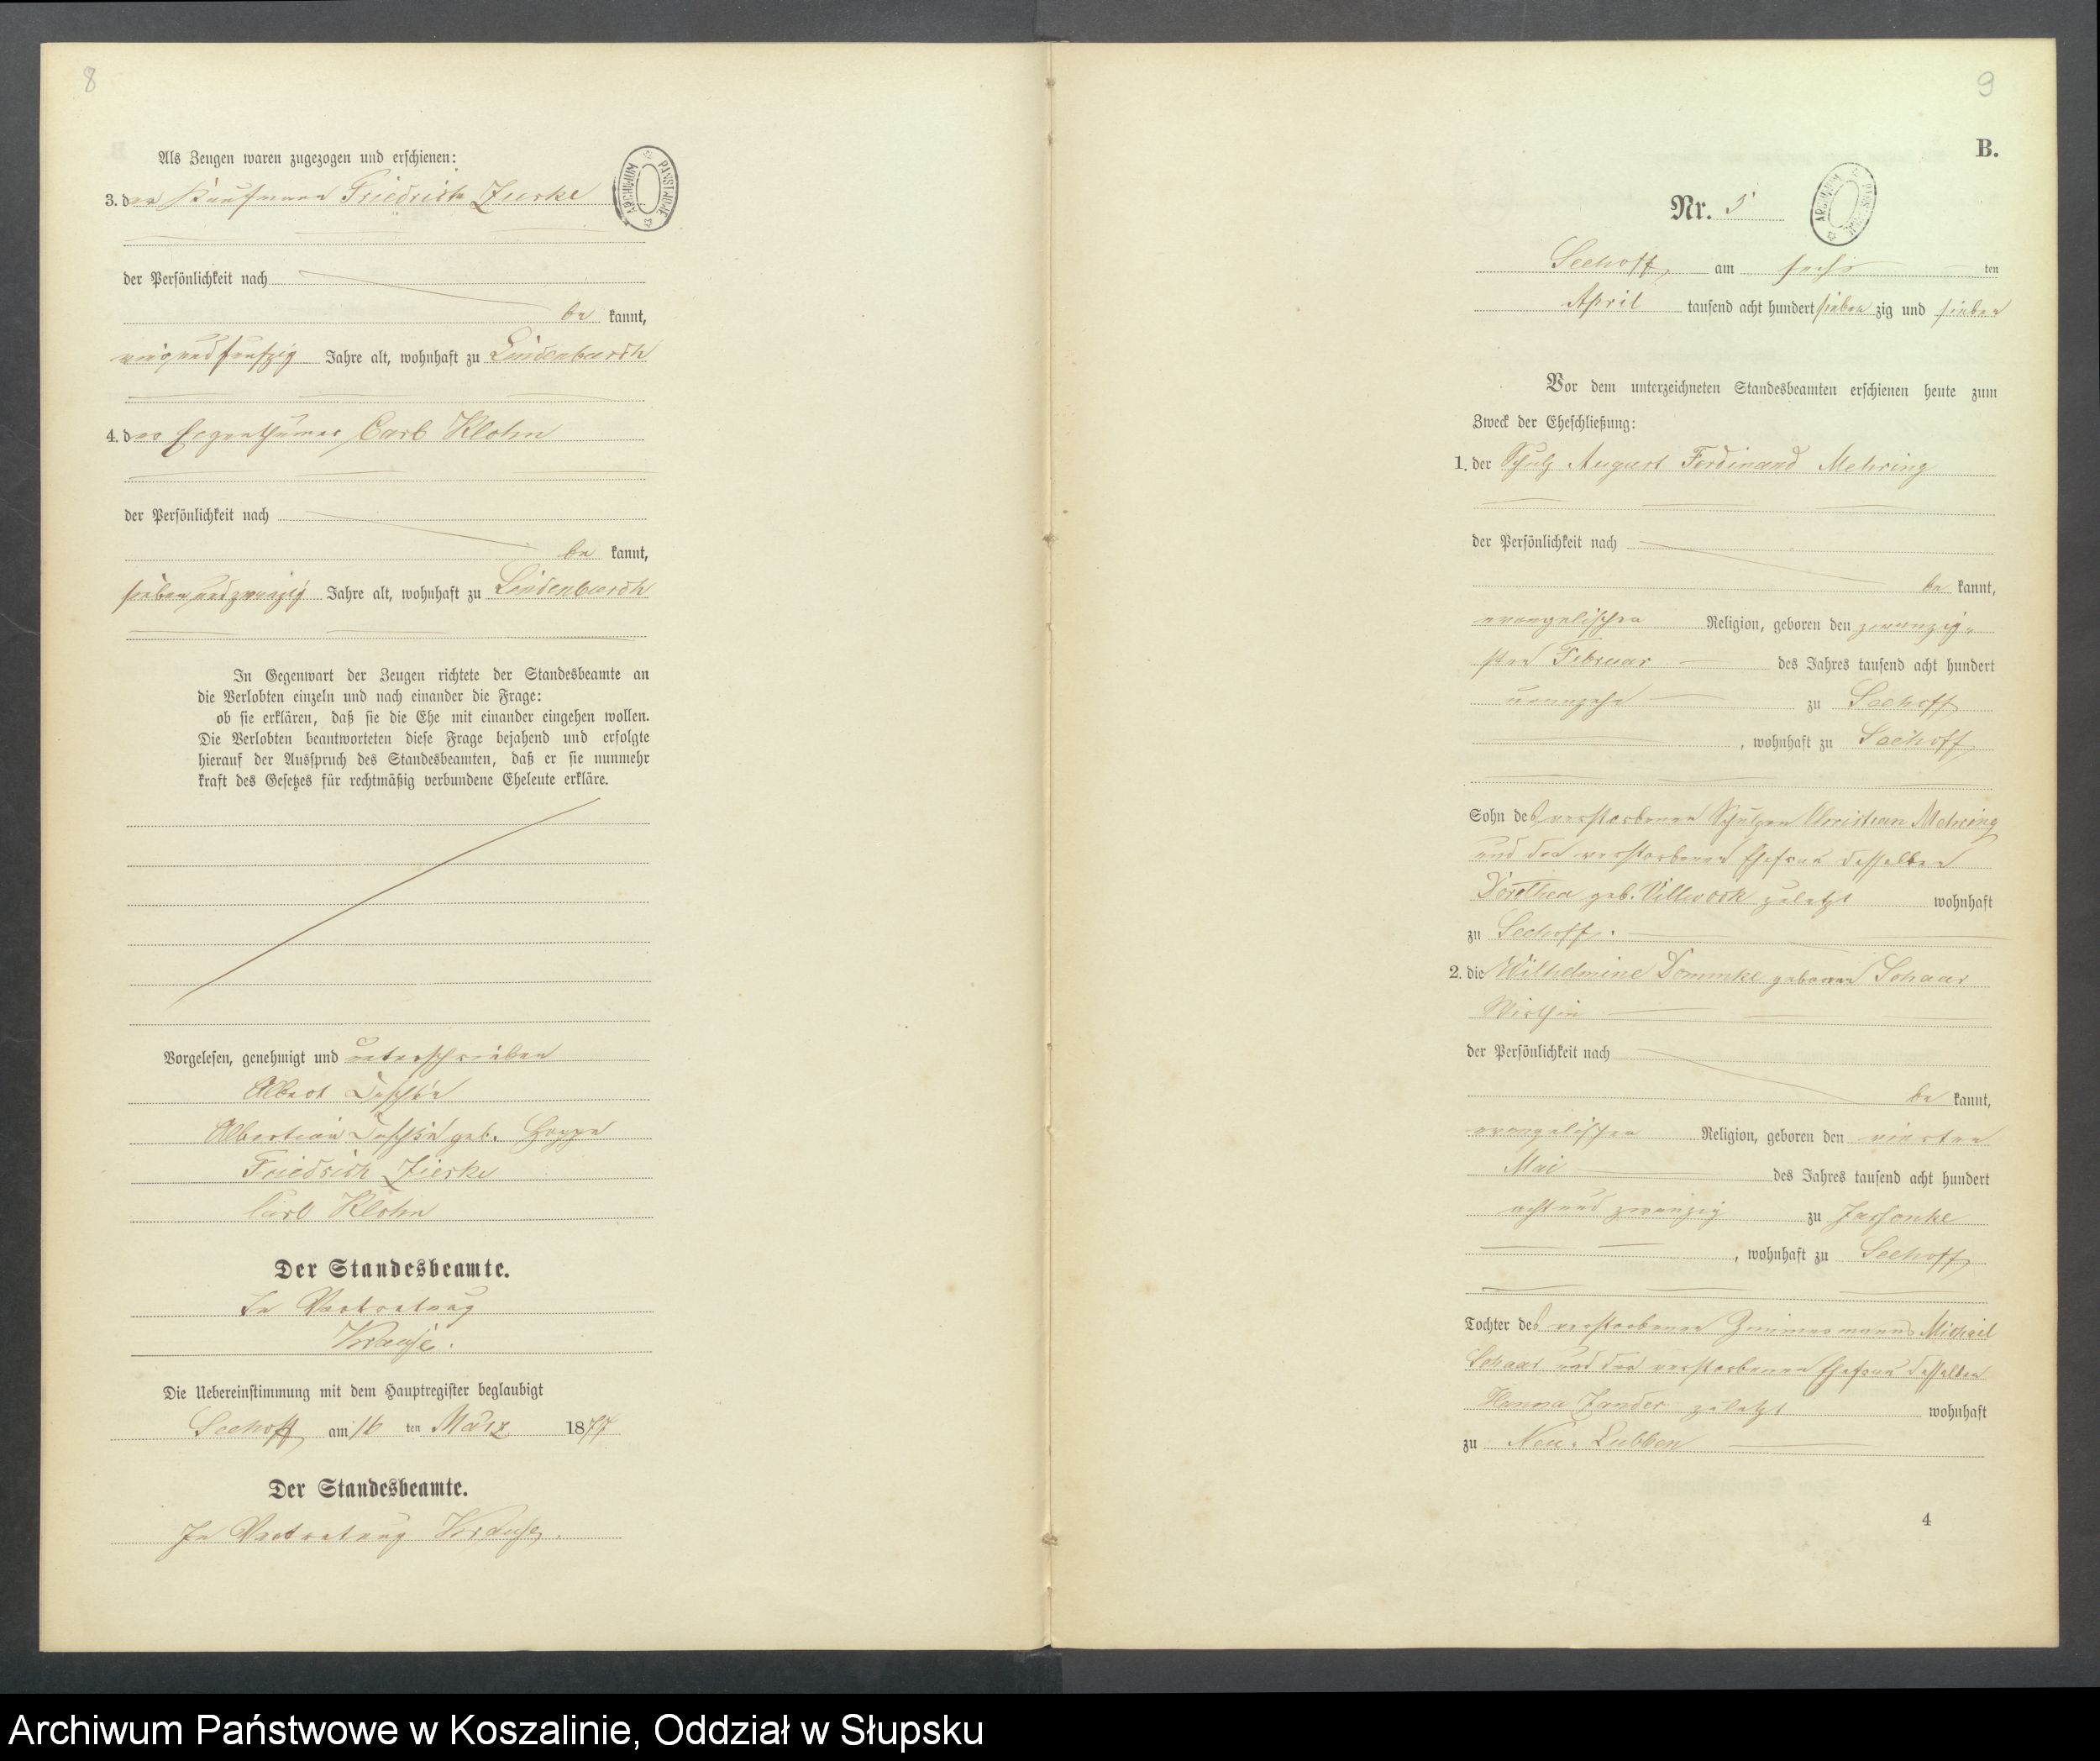 8
Als Zeugen waren zugezogen und erschienen:
3. der Kaufmann Friedrich Zierke
der Persönlichkeit nach
be kannt,
vierundfunfzig Jahre alt, wohnhaft zu Lindenbusch
4. der Eigenthümer Carl Klohn
der Persönlichkeit nach
be kannt,
siebenundzwanzig Jahre alt, wohnhaft zu Lindenbusch
In Gegenwart der Zeugen richtete der Standesbeamte an
die Verlobten einzeln und nach einander die Frage:
ob sie erklären, daß sie die Ehe mit einander eingehen wollen.
Die Verlobten beantworteten diese Frage bejahend und erfolgte
hierauf der Ausspruch des Standesbeamten, daß er sie nunmehr
kraft des Gesetzes für rechtmäßig verbundene Eheleute erkläre.
Vorgelesen, genehmigt und unterschrieben
Albert
Albertine geb. Hoppe
Friedrich Zierke
Carl Klohn
Der Standesbeamte.
In Vertretung
Krause.
Die Uebereinstimmung mit dem Hauptregister beglaubigt
Seehoff am 16 ten März 1877
Der Standesbeamte.
In Vertretung Krause.
ARCHIWUM PAŃSTWOWE
9
B.
Nr. 5
ARCHIWUM PAŃSTWOWE
Seehoff, am sechs ten
April tausend acht hundert sieben zig und sieben
Vor dem unterzeichneten Standesbeamten erschienen heute zum
Zweck der Eheschließung:
1. der Schulz August Ferdinand Mehring
der Persönlichkeit nach
be kannt,
evangelischen Religion, geboren den zwanzig-
sten Februar des Jahres tausend acht hundert
neunzehn zu Seehoff
, wohnhaft zu Seehoff
Sohn des verstorbenen Schulzen Christian Mehring
und der verstorbenen Ehefrau desselben
Dorothea geb. Villwock zuletzt wohnhaft
zu Seehoff.
2. die Wilhelmine Dommke geborene Schaar
Wirthin
der Persönlichkeit nach
be kannt,
evangelischen Religion, geboren den vierten
Mai des Jahres tausend acht hundert
acht und zwanzig zu
, wohnhaft zu Seehoff
Tochter des verstorbenen Zimmermanns Michael
Schaar und der verstorbenen Ehefrau desselben
Hanna Zander zuletzt wohnhaft
zu Neu-Lubben
4
Archiwum Państwowe w Koszalinie, Oddział w Słupsku